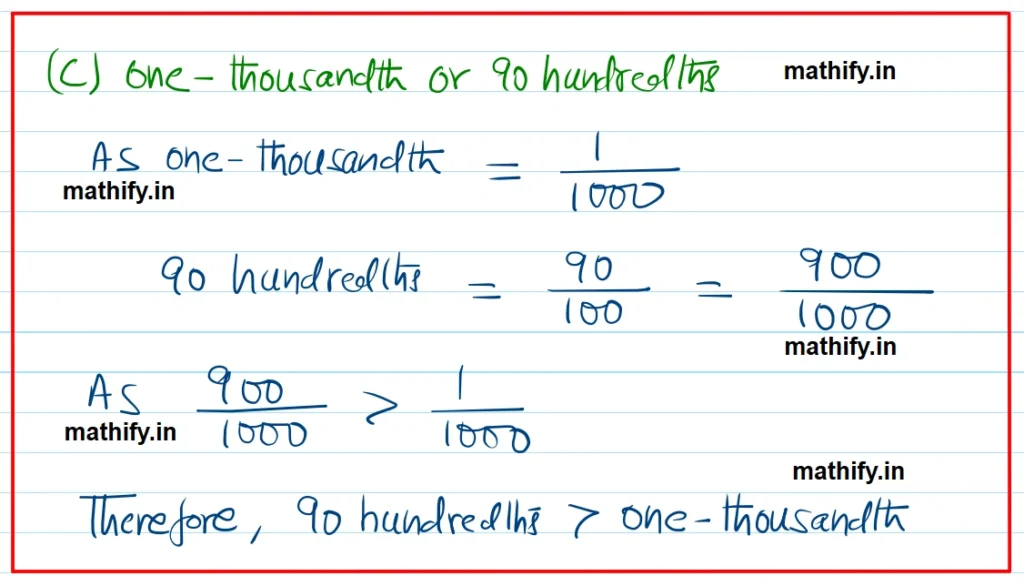 (C) one-thousandth or 90 hundredths mathify.in
As one-thousandth = 1/1000
mathify.in
90 hundredths = 90/100 = 900/1000
mathify.in
As 900/1000 > 1/1000
mathify.in
mathify.in
Therefore, 90 hundredths > one-thousandth